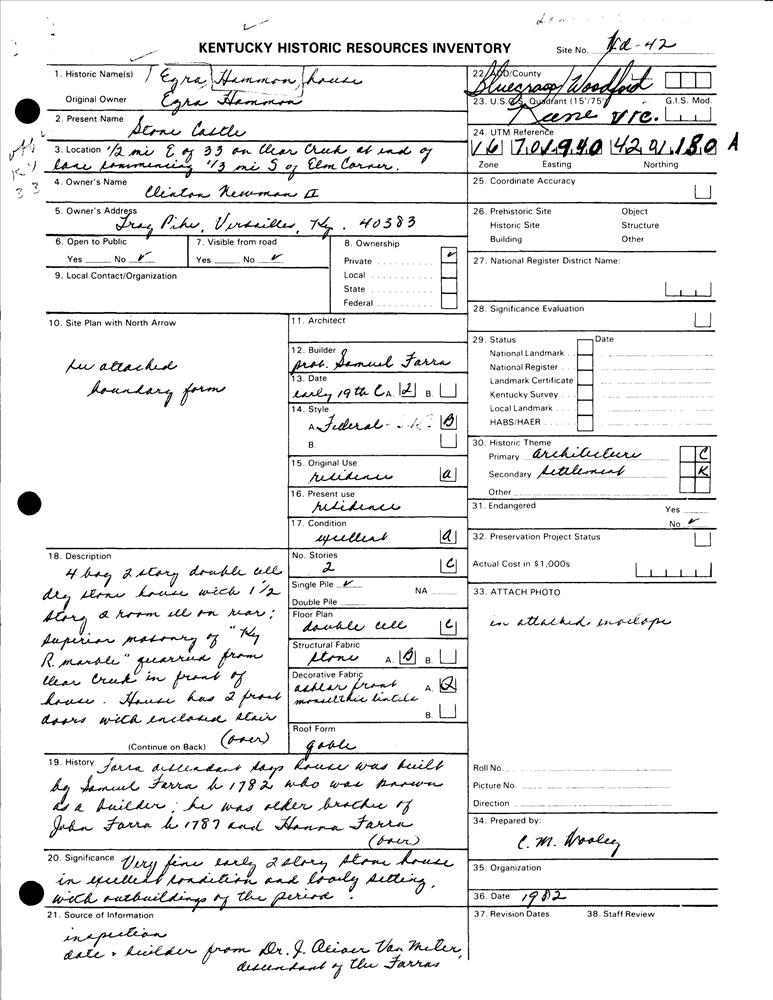 KENTUCKY HISTORIC RESOURCES INVENTORY
Site No. Wd-42
1. Historic Name(s) Ezra Hammon house
Original Owner Ezra Hammon
2. Present Name
Stone Castle
3. Location 1/2 mi E of 33 on Clear Creek at end of
lane commencing 1/3 mi S of Elm Corner.
off
KY
33
4. Owner's Name
Clinton Newman II
5. Owner's Address
Troy Pike, Versailles, Ky. 40383
6. Open to Public
Yes No ✓
7. Visible from road
Yes No ✓
8. Ownership
Private ✓
Local
State
Federal
9. Local Contact/Organization
10. Site Plan with North Arrow
see attached
boundary form
11. Architect
12. Builder
prob. Samuel Farra
13. Date
early 19th C A. 2 B.
14. Style
A. Federal B
B.
15. Original Use
residence a
16. Present use
residence
17. Condition
excellent a
18. Description
4 bay 2 story double cell
dry stone house with 1 1/2
story 2 room ell on rear;
superior masonry of "Ky
R. marble" quarried from
Clear Creek in front of
house. House has 2 front
doors with enclosed stair
(over)
(Continue on Back)
No. Stories
2 C
Single Pile ✓ NA
Double Pile
Floor Plan
double cell C
Structural Fabric
stone A. B B.
Decorative Fabric
ashlar front A. Q
monolithic lintels
B.
Roof Form
gable
19. History Farra descendant says house was built
by Samuel Farra b 1782 who was known
as a builder; he was older brother of
John Farra b 1787 and Hanna Farra
(over)
20. Significance Very fine early 2 story stone house
in excellent condition and lovely setting,
with outbuildings of the period.
21. Source of Information
inspection
date & builder from Dr. J. Oliver Van Meter,
descendant of the Farras
22. ADD/County
Bluegrass/Woodford
23. U.S.G.S. Quadrant (15'/75') G.I.S. Mod.
Keene
24. UTM Reference
16 701940 4201180 A
Zone Easting Northing
25. Coordinate Accuracy
26. Prehistoric Site Object
Historic Site Structure
Building Other
27. National Register District Name:
28. Significance Evaluation
29. Status Date
National Landmark
National Register
Landmark Certificate
Kentucky Survey
Local Landmark
HABS/HAER
30. Historic Theme
Primary architecture C
Secondary settlement K
Other
31. Endangered Yes
No ✓
32. Preservation Project Status
Actual Cost in $1,000s
33. ATTACH PHOTO
in attached envelope
Roll No.
Picture No.
Direction
34. Prepared by:
C. M. Wooley
35. Organization
36. Date 1982
37. Revision Dates 38. Staff Review